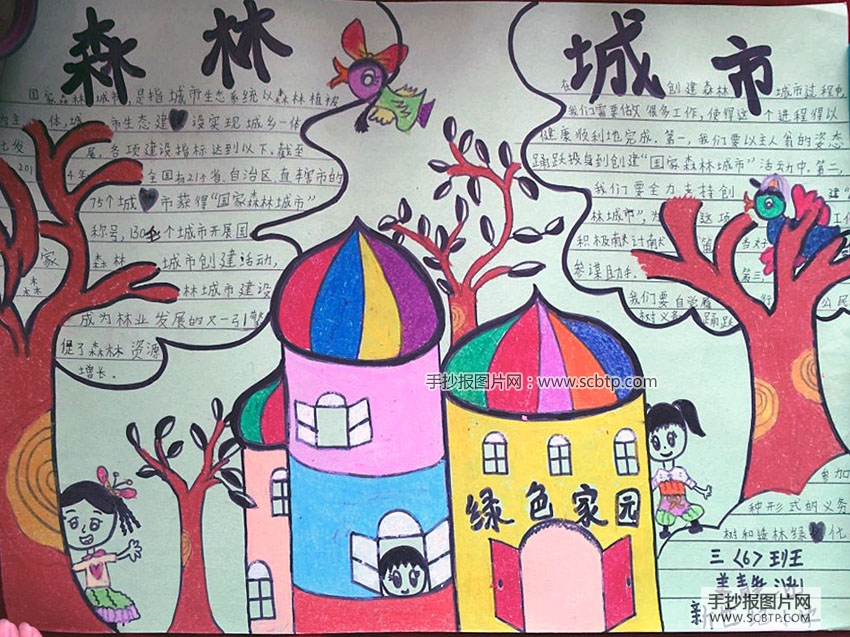 森林
城市
国家森林城市，是指城市生态系统以森林植被
为主体，城市生态建设实现城乡一体
化发展，各项建设指标达到以下。截至
2014年 全国有21个省、自治区、直辖市的
75个城市获得“国家森林城市”
称号，130个城市开展国
家森林城市创建活动，
森林城市建设
成为林业发展的又一引擎
促了森林资源
增长。
在 创建森林城市过程中
我们需要做很多工作，使得这个进程得以
健康顺利地完成。第一，我们要以主人翁的姿态
踊跃投身到创建“国家森林城市”活动中。第二，
我们要全力支持创建“
林城市”，为这项工
积极献计献
参谋助手。第三，
我们要自觉 行 公民
树义务 踊跃
参加
种形式的义务
树和造林绿化
绿色家园
手抄报图片网：www.scbtp.com
三〈6〉班
手抄报图片网
SCBTP.COM